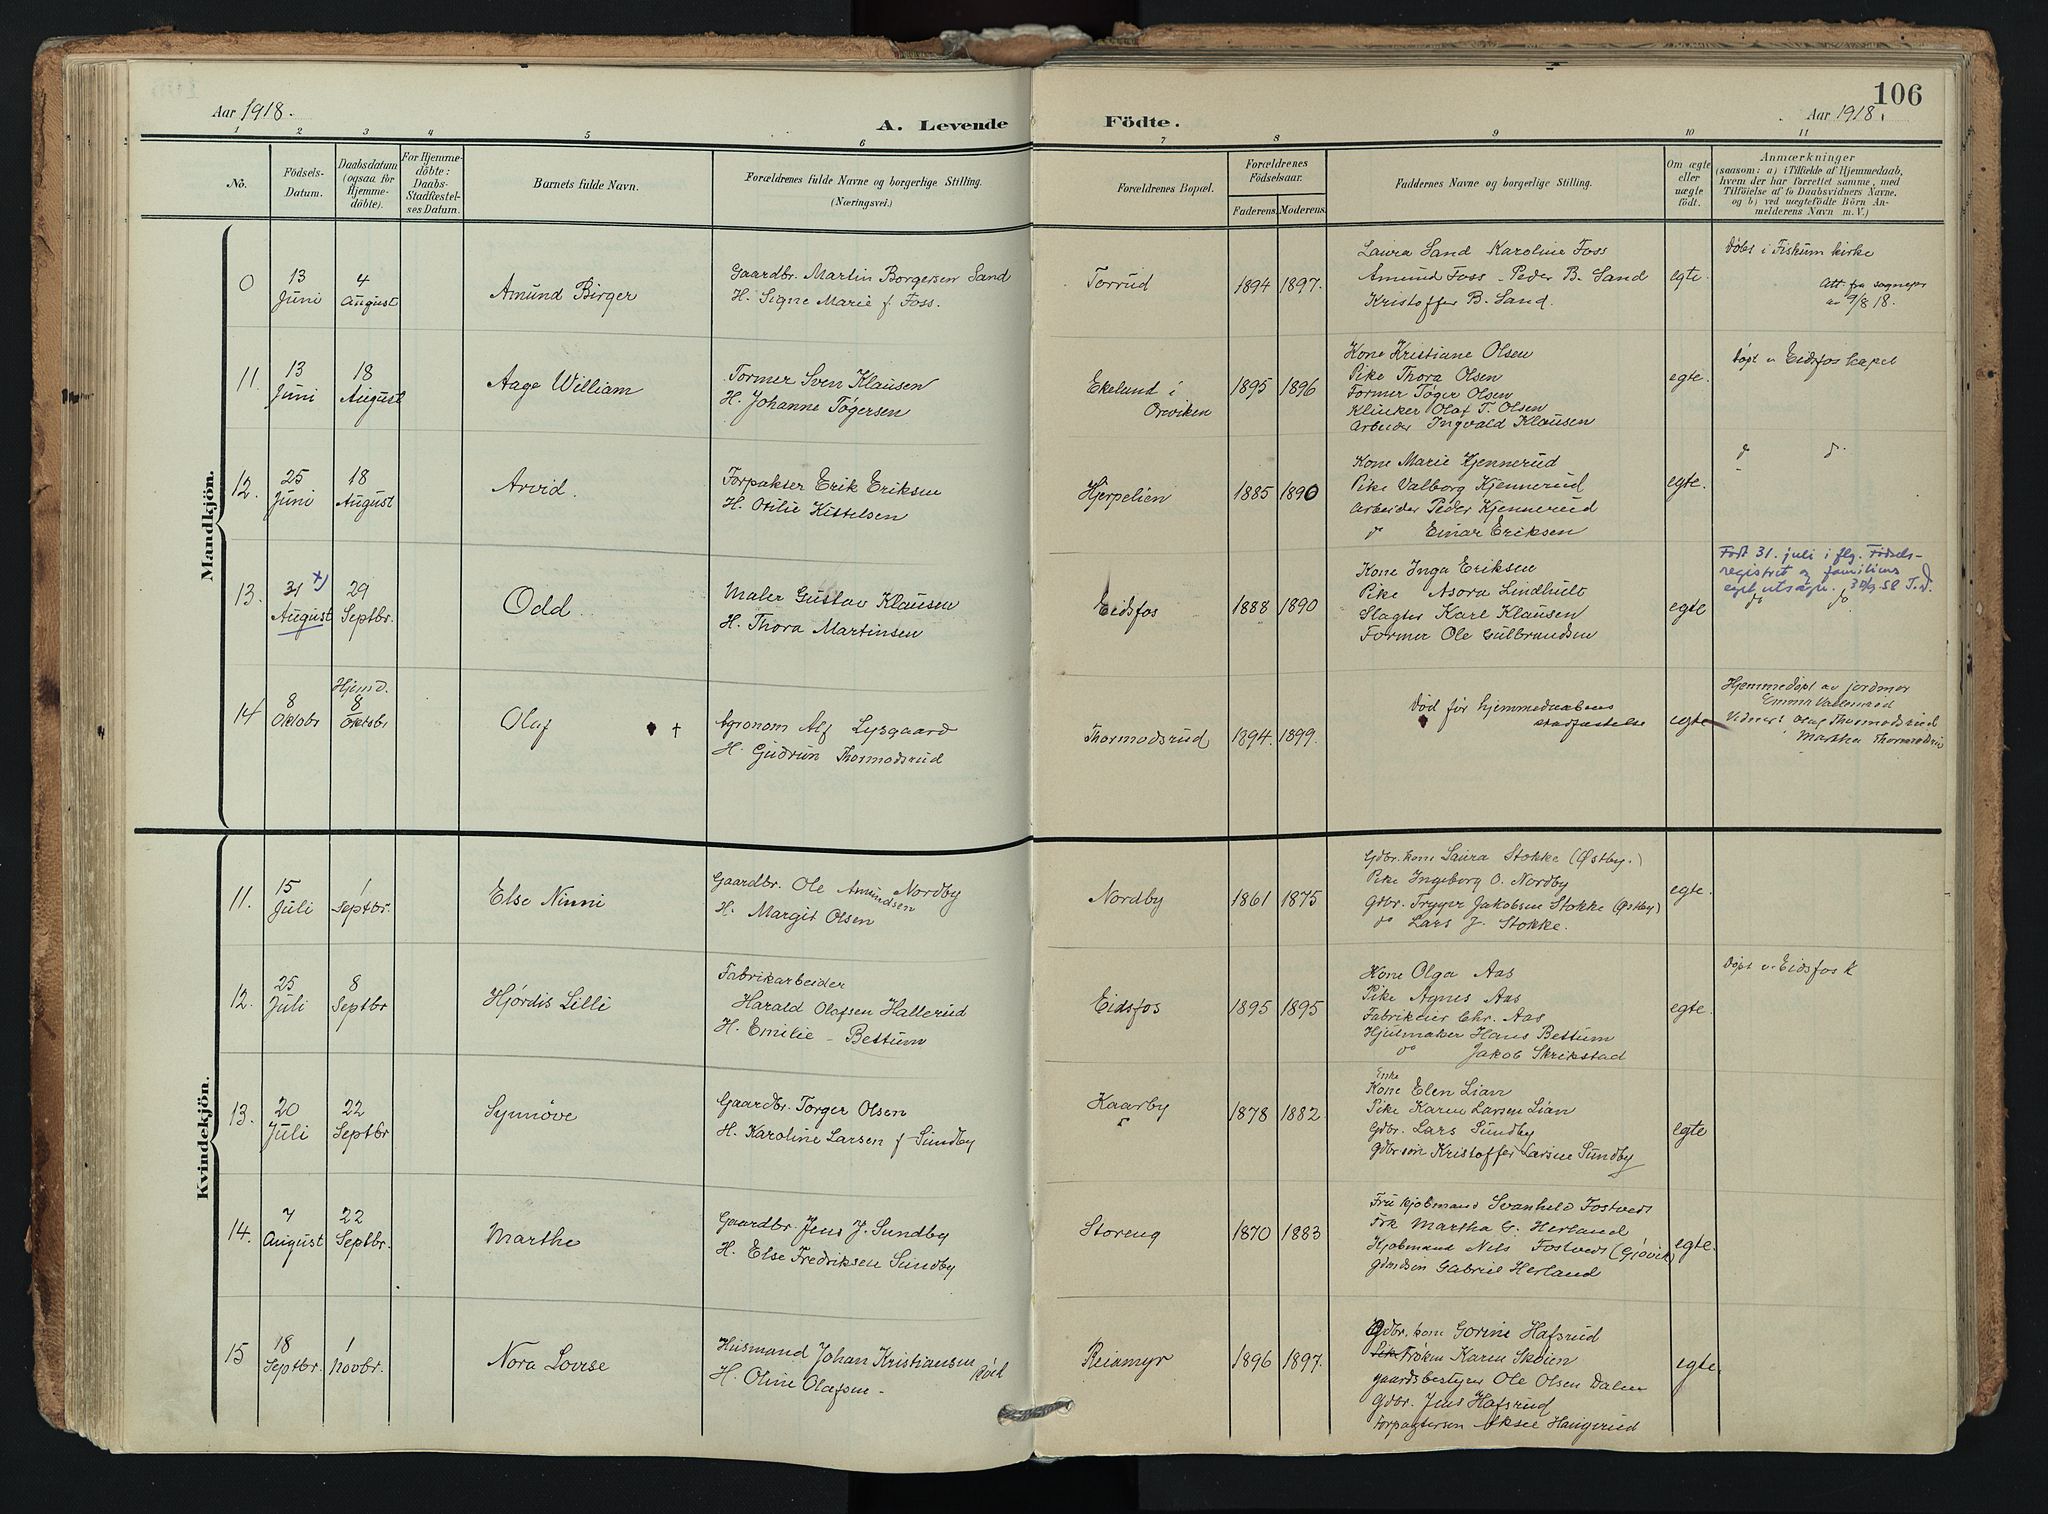 Aar 1918.
A. Levende
1 2 3 4 5 6
No.
Födsels-Datum.
Daabsdatum (ogsaa for Hjemme-döbte).
For Hjemme-döbte: Daabs-Stadfæstel-ses Datum.
Barnets fulde Navn.
Forældrenes fulde Navne og borgerlige Stilling.
(Næringsvei.)
Mandkjön.
0 13 Juni 4 August Amund Birger Gaardbr. Martin Borgersen Sand
H. Signe Marie f. Foss.
11. 13 Juni 18 August Aage William Former Sven Klausen
H. Johanne Tøgersen
12. 25 Juni 18 August Arvid. Forpakter Erik Eriksen
H. Otilie Kittelsen
13. 31 x) August 29 Septbr. Odd. Maler Gustav Klausen
H. Thora Martinsen
14 8 Oktobr Hjemd. 8 Oktbr Olaf † Agronom Alf Lysgaard
H. Gudrun Thormodsrud
Kvindekjön.
11. 15 Juli 1 Septbr. Else Ninni Gaardbr. Ole Amundsen Nordby
H. Margit Olsen
12. 25 Juli 8 Septbr Hjørdis Lilli Fabrikarbeider
Harald Olafsen Hallerud
H. Emilie - Bettum
13. 20 Juli 22 Septbr Synnøve Gaardbr. Torger Olsen
H. Karoline Larsen f. Sundby
14. 7 August 22 Septbr. Marthe Gaardbr. Jens J. Sundby
H. Else Fredriksen Sundby
15 18 Septbr. 1 Novbr. Nora Lovise Husmand Johan Kristiansen
H. Oline Olafsen -
106
Aar 1918.
Födte.
7 8 9 10 11
Forældrenes Bopæl.
Forældrenes Födselsaar.
Faderens. Moderens.
Faddernes Navne og borgerlige Stilling.
Om ægte eller uægte födt.
Anmærkninger
(saasom: a) i Tilfælde af Hjemmedaab,
hvem der har forrettet samme, med
Tilföielse af to Daabsvidners Navne.
og b) ved uægtefödte Börn An-
melderens Navn m. V.)
Torrud 1894 1897. Laura Sand Karoline Foss
Amund Foss - Peder B. Sand
Kristoffer B. Sand.
egte.
Døbt i Fiskum kirke
Att. fra sognepr
av 9/8 18.
Ekelund i
Oreviken
1895 1896
Kone Kristiane Olsen
Pike Thora Olsen
Former Tøger Olsen
Klinker Olaf T. Olsen
Arbeider Ingvald Klausen
egte.
Døpt i Eidsfos kapel
Hjerpelien 1885 1890
Kone Marie Kjennerud
Pike Valborg Kjennerud
Arbeider Peder Kjennerud
do Einar Eriksen
egte.
do do
Eidsfos 1888 1890
Kone Inga Eriksen
Pike Asora Lindhult
Slagter Karl Klausen
Former Ole Gulbrandsen
egte
Født 31. juli i flg. Fødsels-
registret og familiens
egel utsagn. 30/9 58 T.D.
do do
Thormodsrud 1894. 1899.
Død før hjemmedaabens
stadfæstelse
egte
Hjemmedøpt av jordmor
Emma
Vidner: Olaf Thormodsrud
Martha Thormodsrud
Nordby 1861 1875
Gdbr. kone Laura Stokke (Østby.)
Pike Ingeborg O. Nordby
Gdbr. Trygve Jakobsen Stokke (Østby)
do Lars J. Stokke.
egte.
Eidsfos 1895 1895
Kone Olga Aas
Pike Agnes Aas
Fabrikeier Chr. Aas
Hjulmaker Hans Bettum
do Jakob Skrikstad
egte.
Døpt i Eidsfos k
Kaarby 1878 1882
Enke
Kone Elen Lian
Pike Karen Larsen Lian
Gdbr. Lars Sundby
Gdbr søn Kristoffer Larsen Sundby
egte
Storeng 1870 1883
Fru kjøbmand Svanheld Fostveds
Frk Martha G. Herland
Kjøbmand Nils Fostveds (Gjøvik)
Gdmdsøn Gabriel Herland
egte.
Reiamyr 1896 1897.
Gdbr. kone Gorine Hafsrud
Frøken Karen Skoien
gaardsbestyrer Ole Olsen Dalen
Gdbr. Jens Hafsrud
forpagtersøn Aksel Haugerud
egte.